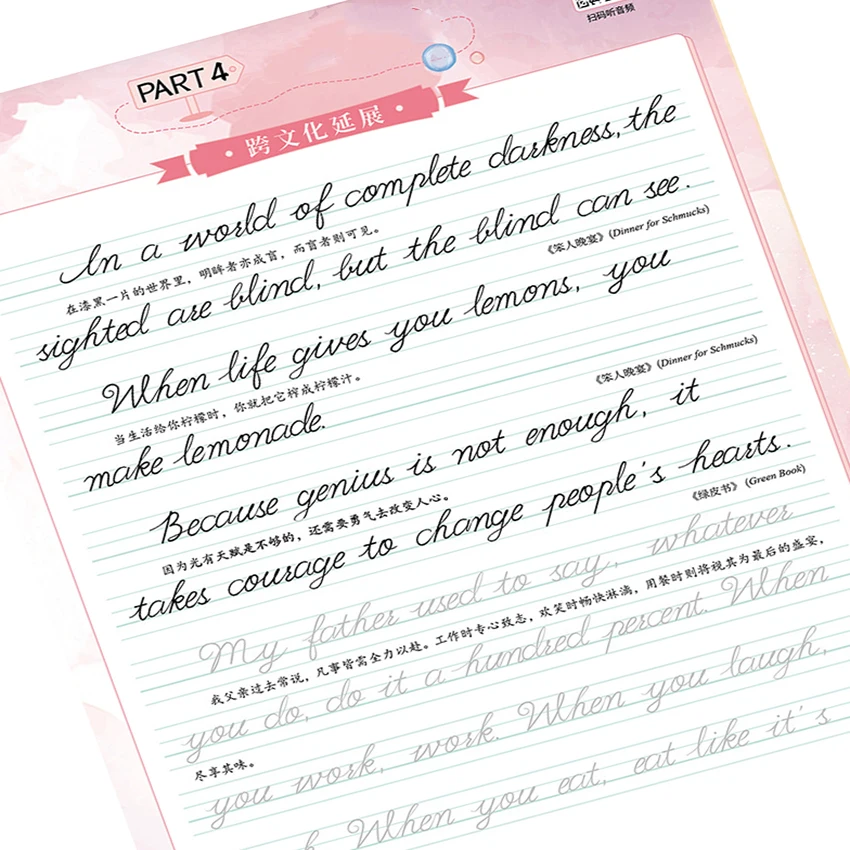 扫码听音频
PART 4
跨文化延展
In a world of complete darkness, the
在漆黑一片的世界里，明眸者亦成盲，而盲者则可见。
sighted are blind, but the blind can see.
《笨人晚宴》(Dinner for Schmucks)
When life gives you lemons, you
当生活给你柠檬时，你就把它榨成柠檬汁。
make lemonade.
《笨人晚宴》(Dinner for Schmucks)
Because genius is not enough, it
因为光有天赋是不够的，还需要勇气去改变人心。
takes courage to change people's hearts.
《绿皮书》 (Green Book)
My father used to say, whatever
我父亲过去常说，凡事皆需全力以赴。工作时专心致志，欢笑时畅快淋漓，用餐时则将视其为最后的盛宴，
you do, do it a hundred percent. When
尽享其味。
you work, work. When you laugh,
When you eat, eat like it's